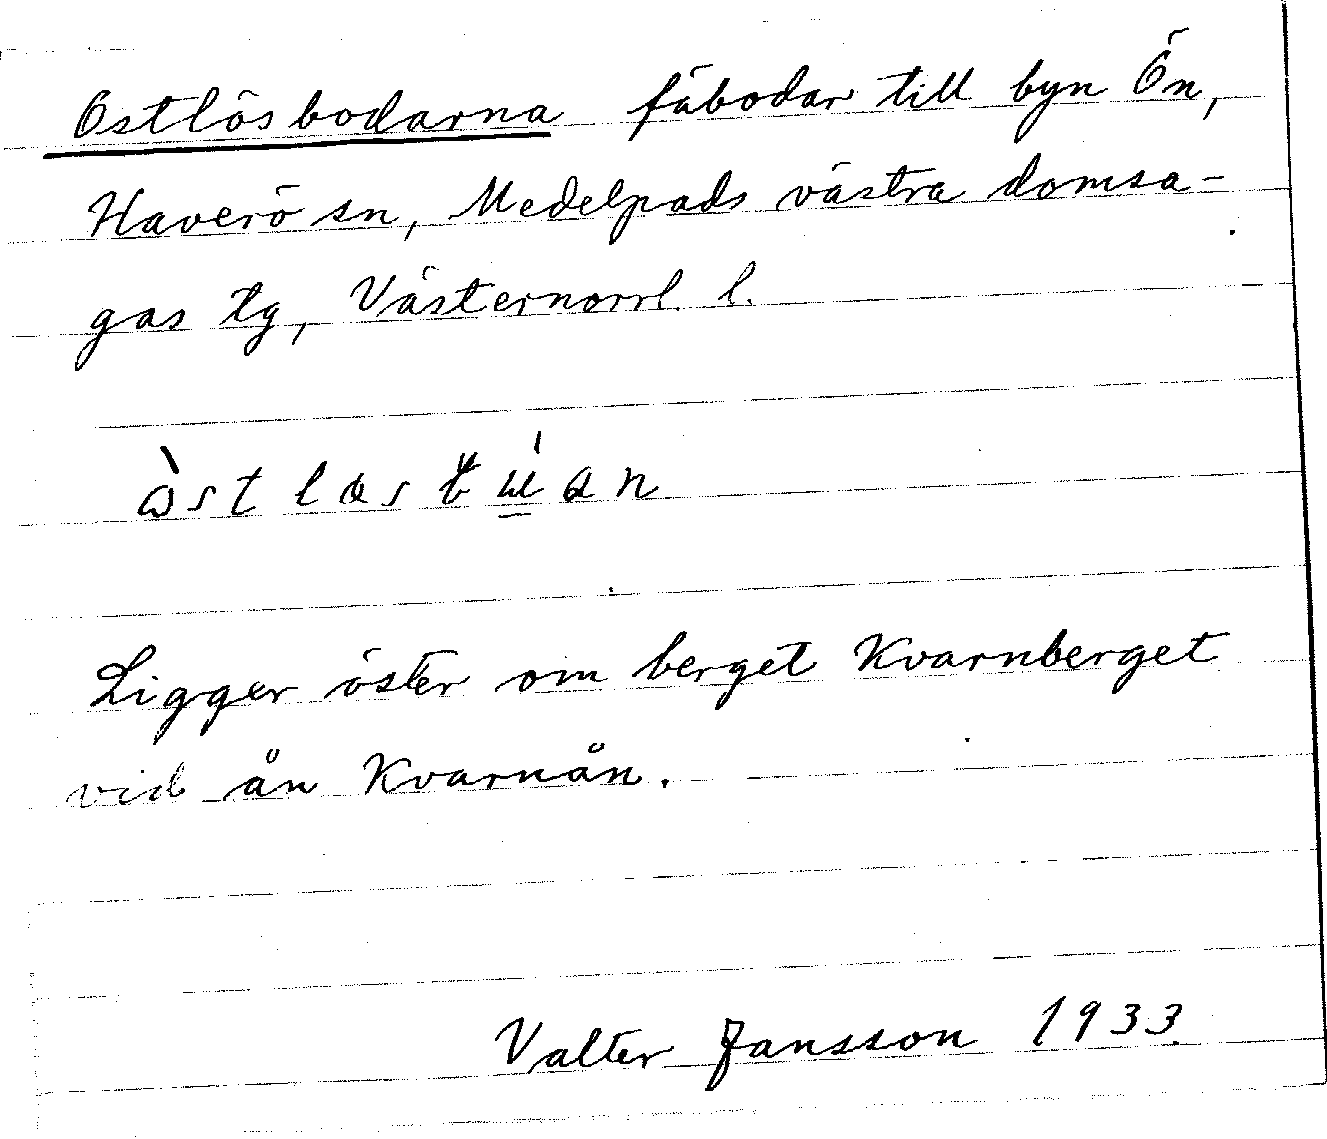 Ostlösbodarna fäbodar till byn Ön,
Haverö sn, Medelpads västra domsa-
gas tg, Västernorrl. l.
Ligger öster om berget Kvarnberget
vid ån Kvarnån.
Valter Jansson 1933.